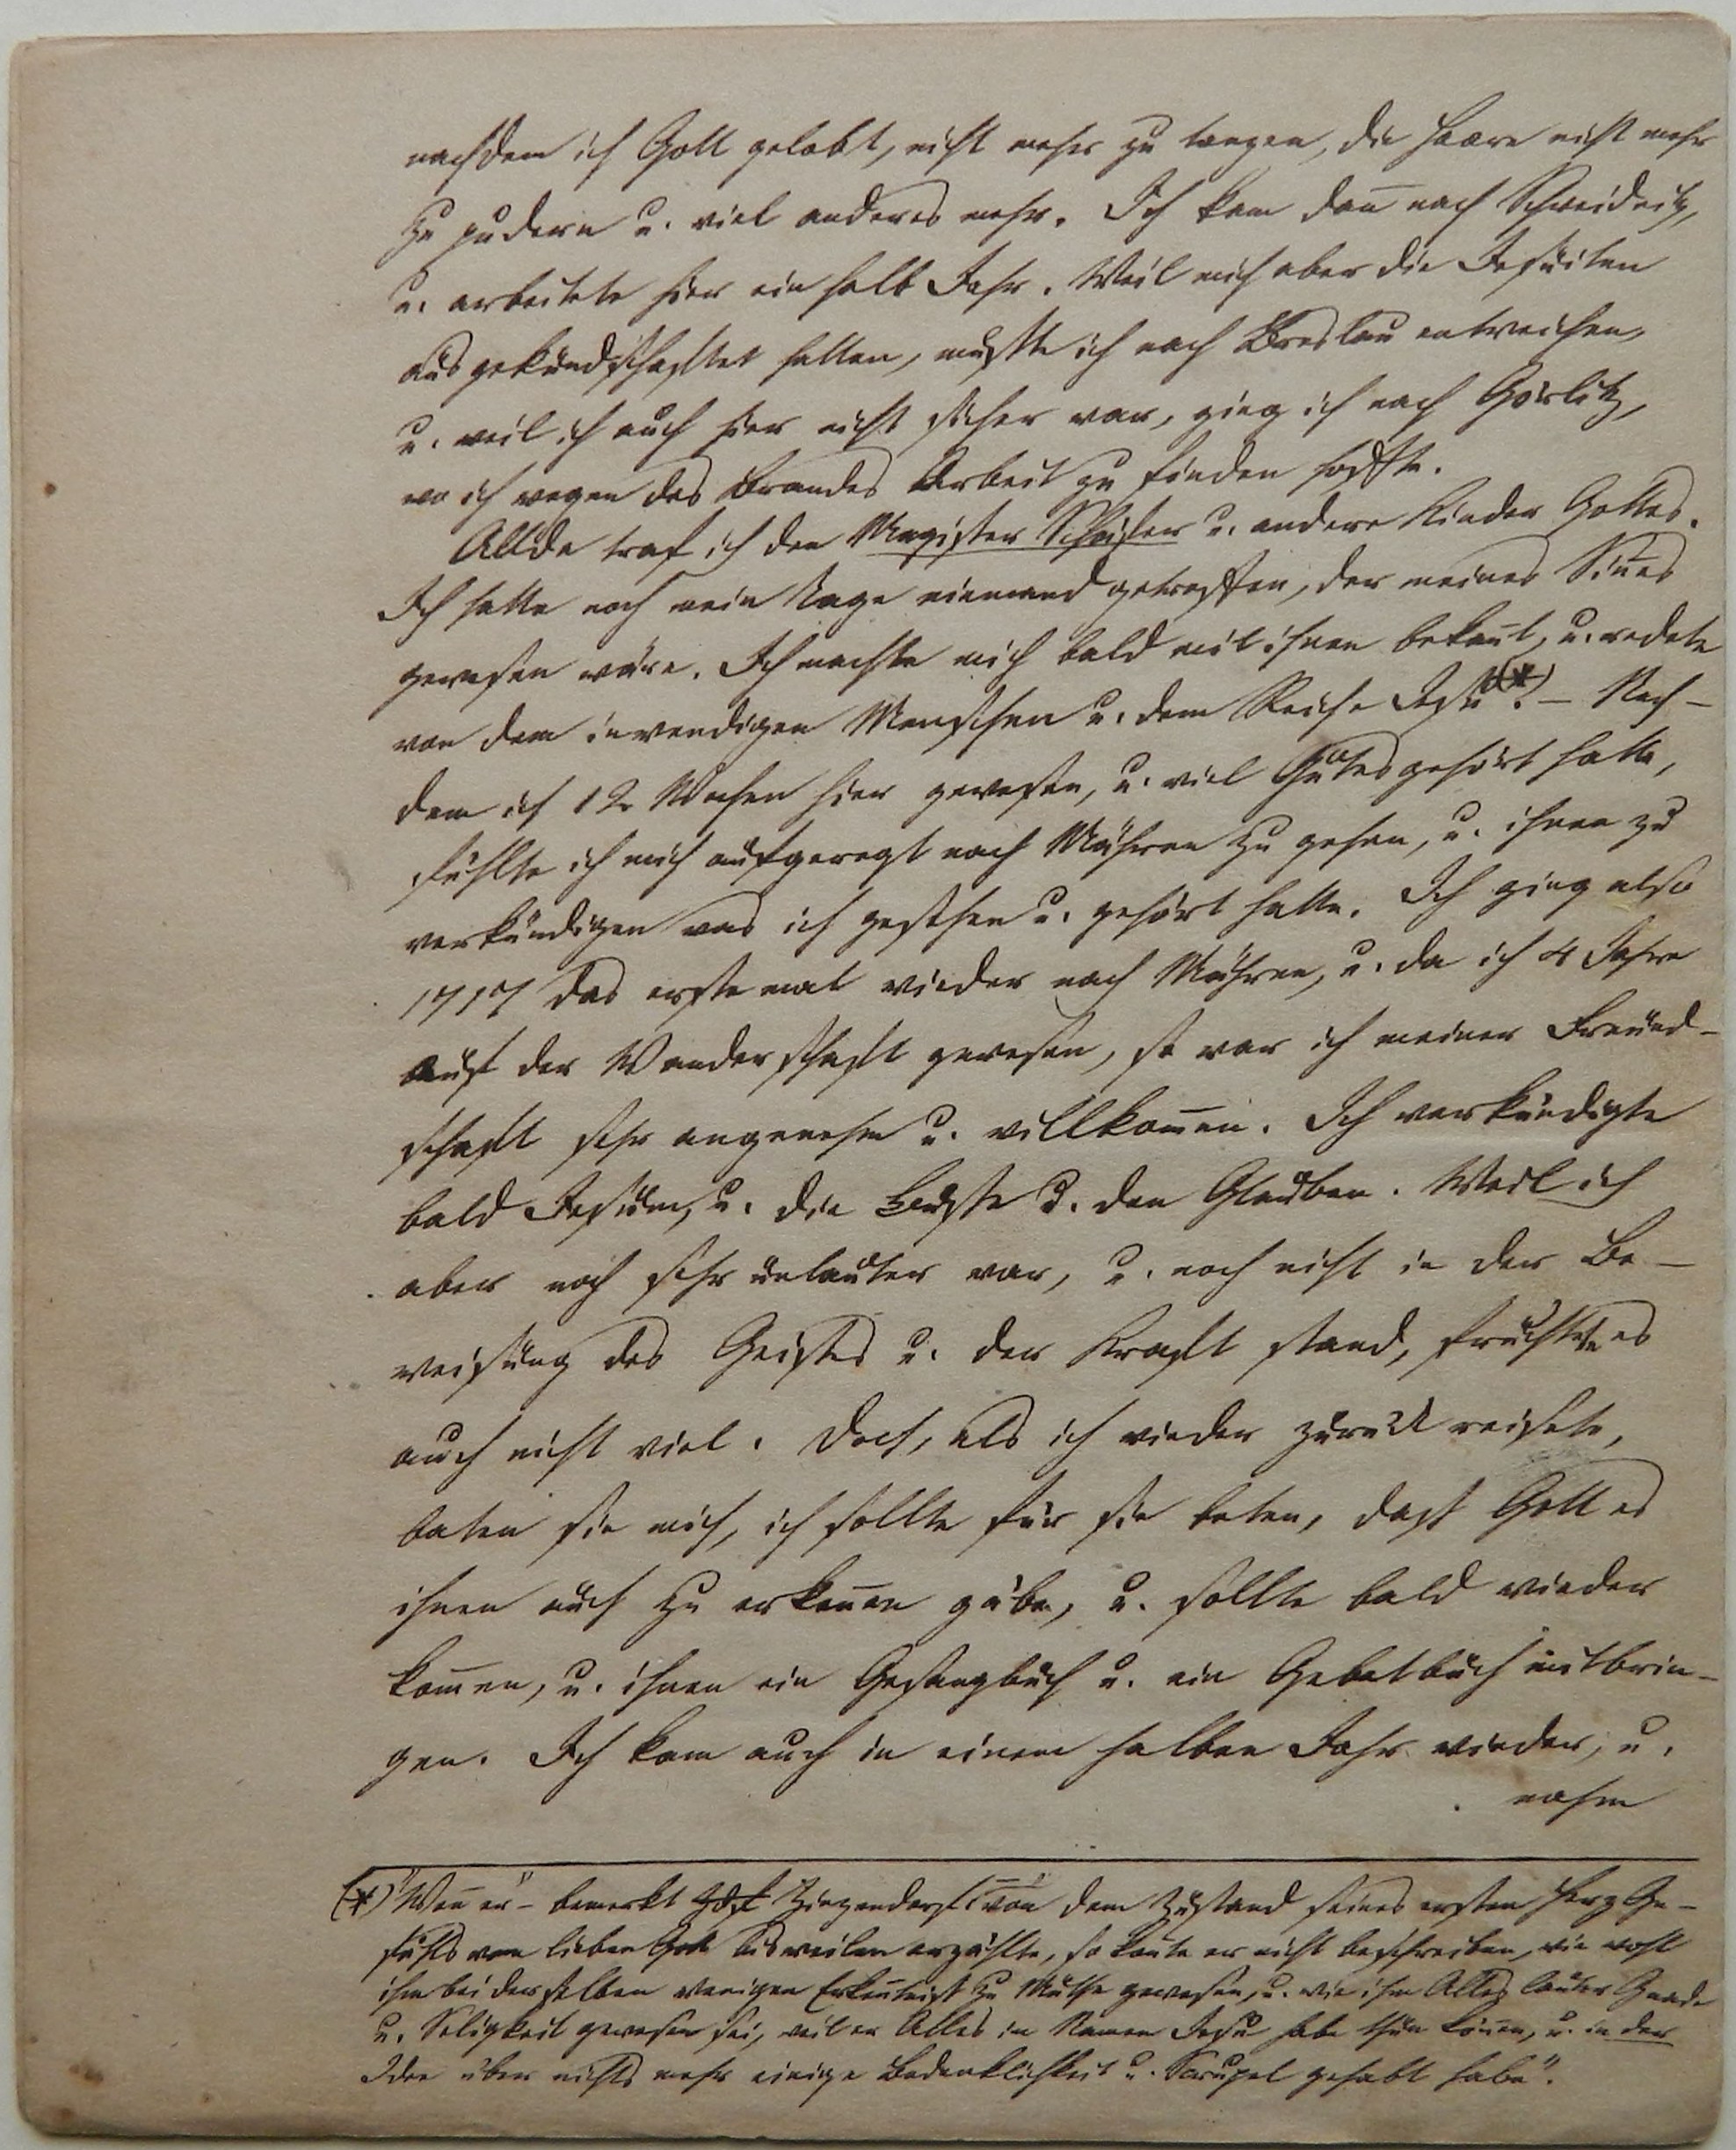 nachdem ich Gott gelobt, nicht mehr zu tanzen, die Haare nicht mehr
zu pudern u. viel anderes mehr. Ich kam dan̄ nach Schweidnitz,
u. arbeitete hier ein halb Jahr. Weil mich aber die Jesuiten
ausgekundschaftet hatten, mußte ich nach Breslau entweichen,
u. weil ich auch hier nicht sicher war, ging ich nach Görlitz,
wo ich wegen des Brandes Arbeit zu finden hoffte.
Allda traf ich den Magister Schäfer u. andere Kinder Gottes.
Ich hatte noch mein Tage niemand getroffen, der meines Sin̄es
gewesen wäre. Ich machte mich bald mit ihnen bekan̄t, u. redete
von dem inwendigen Menschen u. dem Reiche Jesu (*). – Nach-
dem ich 12 Wochen hier gewesen, u. viel Gutes gehört hatte,
fühlte ich mich aufgeregt nach Mähren zu gehen, u. ihnen zu
verkündigen was ich gesehen u. gehört hatte. Ich ging also
1717 das erste mal wieder nach Mähren, u. da ich 4 Jahre
auf der Wanderschaft gewesen, so war ich meiner Freund-
schaft sehr angenehm u. willkom̄en. Ich verkündigte
bald Jesum, u. die Buße u. den Glauben. Weil ich
aber noch sehr unlauter war, u. noch nicht in der Be-
weisung des Geistes u. der Kraft stand, fruchtete es
auch nicht viel. Doch, als ich wieder zurück reisete,
baten sie mich, ich sollte für sie beten, daß Gott es
ihnen auch zu erken̄en gäbe, u. sollte bald wieder
kom̄en, u. ihnen ein Gesangbuch u. ein Gebetbuch mitbrin-
gen. Ich kam auch in einem halben Jahr wieder, u.
nahm
(*) "Wen̄ er" – bemerkt Zinzendorf – "von dem Zustand seines ersten Herz Ge-
fühls vom lieben Gott bisweilen erzählte, so kon̄te er nicht beschreiben, wie wohl
ihm bei derselben wenigen Erken̄tniß zu Muthe gewesen, u. wie ihm Alles lauter Gnade
u. Seligkeit gewesen sei, weil er Alles im Namen Jesu habe thun kön̄en, u. in der
Idee über nichts mehr einige Bedenklichkeit u. Scrupel gehabt habe".